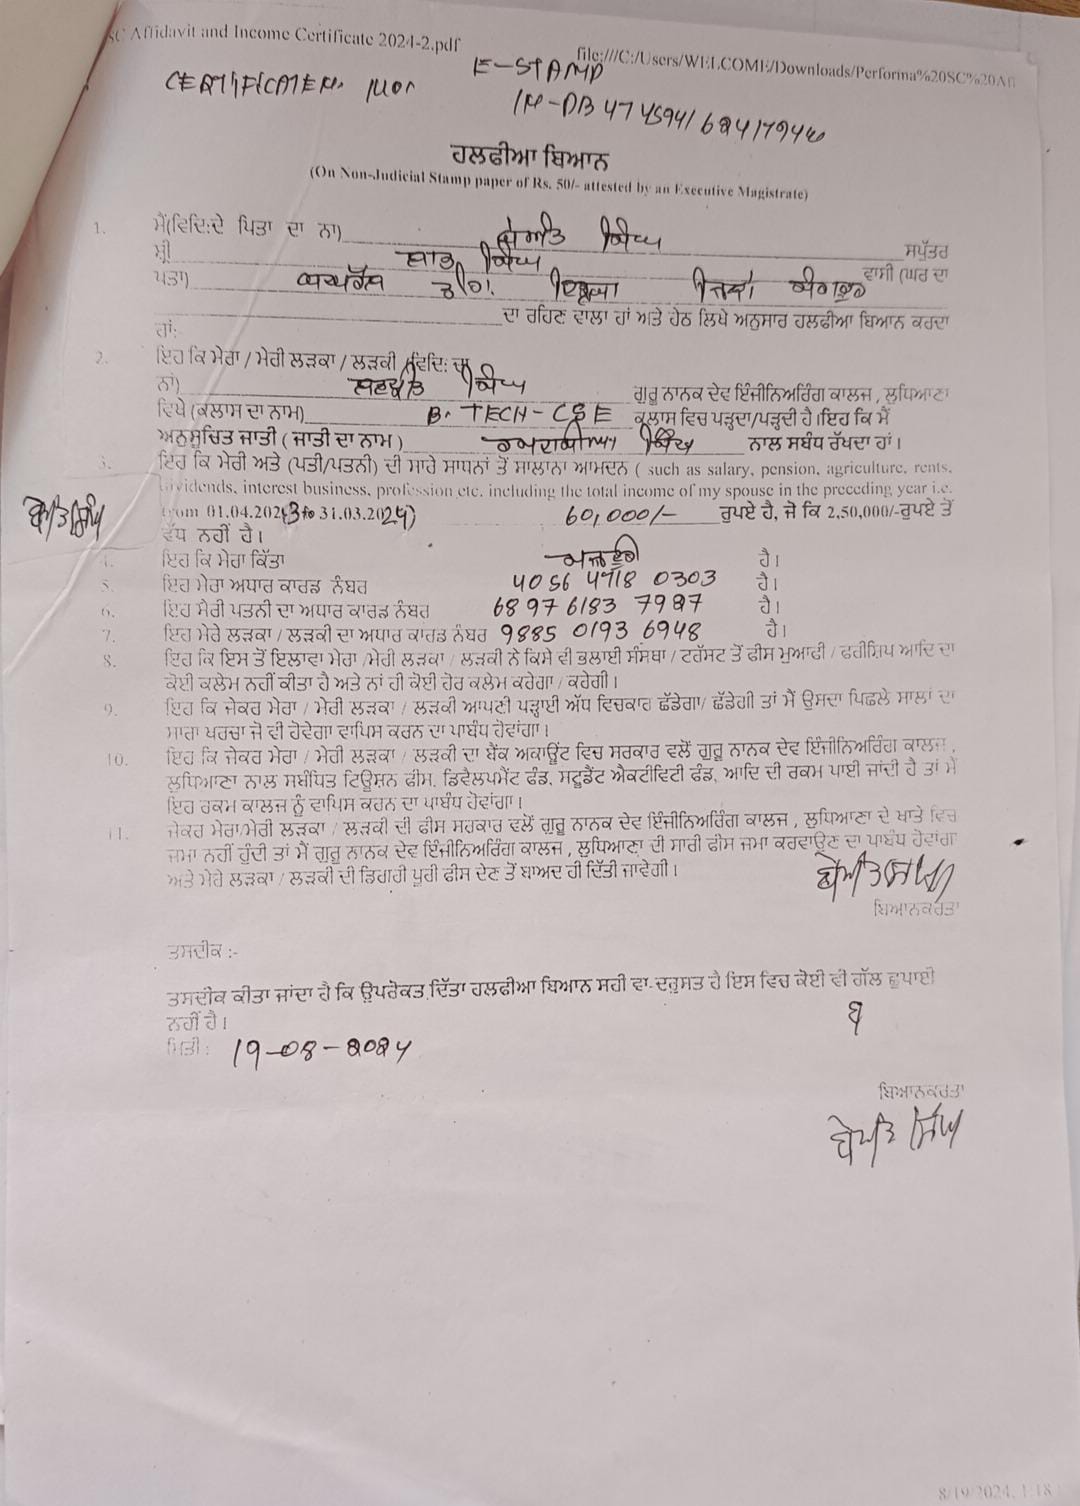 SC Affidavit and Income Certificate 2024-2.pdf
file:///C:/Users/WELCOME/Downloads/Performa%20SC%20Aff
E-STAMP
IN-PB
ਹਲਫੀਆ ਬਿਆਨ
(On Non-Judicial Stamp paper of Rs. 50/- attested by an Executive Magistrate)
1. ਮੈਂ(ਵਿਦਿ:ਦੇ ਪਿਤਾ ਦਾ ਨਾ) ਬੇਅੰਤ ਸਿੰਘ ਸਪੁੱਤਰ
ਸ੍ਰੀ ਸਿੰਘ ਵਾਸੀ (ਘਰ ਦਾ
ਪਤਾ) ਜਿਲਾ ਸੰਗਰੂਰ
ਦਾ ਰਹਿਣ ਵਾਲਾ ਹਾਂ ਅਤੇ ਹੇਠ ਲਿਖੇ ਅਨੁਸਾਰ ਹਲਫੀਆ ਬਿਆਨ ਕਰਦਾ
ਹਾਂ:-
2. ਇਹ ਕਿ ਮੇਰਾ / ਮੇਰੀ ਲੜਕਾ / ਲੜਕੀ (ਵਿਦਿ: ਦਾ
ਨਾਂ) ਸਿੰਘ ਗੁਰੂ ਨਾਨਕ ਦੇਵ ਇੰਜੀਨਿਅਰਿੰਗ ਕਾਲਜ , ਲੁਧਿਆਣਾ
ਵਿਖੇ (ਕਲਾਸ ਦਾ ਨਾਮ) B. TECH - CSE ਕਲਾਸ ਵਿਚ ਪੜਦਾ/ਪੜਦੀ ਹੈ।ਇਹ ਕਿ ਮੈਂ
ਅਨੁਸੂਚਿਤ ਜਾਤੀ ( ਜਾਤੀ ਦਾ ਨਾਮ ) ਸਿੰਘ ਨਾਲ ਸਬੰਧ ਰੱਖਦਾ ਹਾਂ।
3. ਇਹ ਕਿ ਮੇਰੀ ਅਤੇ (ਪਤੀ/ਪਤਨੀ) ਦੀ ਸਾਰੇ ਸਾਧਨਾਂ ਤੋਂ ਸਾਲਾਨਾ ਆਮਦਨ ( such as salary, pension, agriculture, rents,
dividends, interest business, profession etc. including the total income of my spouse in the preceding year i.e.
ਬੇਅੰਤ ਸਿੰਘ
from 01.04.2023 to 31.03.2024) 60,000/- ਰੁਪਏ ਹੈ, ਜੋ ਕਿ 2,50,000/-ਰੁਪਏ ਤੋਂ
ਵੱਧ ਨਹੀਂ ਹੈ।
4. ਇਹ ਕਿ ਮੇਰਾ ਕਿੱਤਾ ਮਜਦੂਰੀ ਹੈ।
5. ਇਹ ਮੇਰਾ ਅਧਾਰ ਕਾਰਡ ਨੰਬਰ 4056 4718 0303 ਹੈ।
6. ਇਹ ਮੇਰੀ ਪਤਨੀ ਦਾ ਅਧਾਰ ਕਾਰਡ ਨੰਬਰ 6897 6183 7927 ਹੈ।
7. ਇਹ ਮੇਰੇ ਲੜਕਾ / ਲੜਕੀ ਦਾ ਅਧਾਰ ਕਾਰਡ ਨੰਬਰ 9885 0193 6948 ਹੈ।
8. ਇਹ ਕਿ ਇਸ ਤੋਂ ਇਲਾਵਾ ਮੇਰਾ /ਮੇਰੀ ਲੜਕਾ / ਲੜਕੀ ਨੇ ਕਿਸੇ ਵੀ ਭਲਾਈ ਸੰਸਥਾ / ਟਰੱਸਟ ਤੋਂ ਫੀਸ ਮੁਆਫੀ / ਫਰੀਸ਼ਿਪ ਆਦਿ ਦਾ
ਕੋਈ ਕਲੇਮ ਨਹੀਂ ਕੀਤਾ ਹੈ ਅਤੇ ਨਾਂ ਹੀ ਕੋਈ ਹੋਰ ਕਲੇਮ ਕਰੇਗਾ / ਕਰੇਗੀ।
9. ਇਹ ਕਿ ਜੇਕਰ ਮੇਰਾ / ਮੇਰੀ ਲੜਕਾ / ਲੜਕੀ ਆਪਣੀ ਪੜ੍ਹਾਈ ਅੱਧ ਵਿਚਕਾਰ ਛੱਡੇਗਾ/ ਛੱਡੇਗੀ ਤਾਂ ਮੈਂ ਉਸਦਾ ਪਿਛਲੇ ਸਾਲਾਂ ਦਾ
ਸਾਰਾ ਖਰਚਾ ਜੋ ਵੀ ਹੋਵੇਗਾ ਵਾਪਿਸ ਕਰਨ ਦਾ ਪਾਬੰਧ ਹੋਵਾਂਗਾ।
10. ਇਹ ਕਿ ਜੇਕਰ ਮੇਰਾ / ਮੇਰੀ ਲੜਕਾ / ਲੜਕੀ ਦਾ ਬੈਂਕ ਅਕਾਊਂਟ ਵਿਚ ਸਰਕਾਰ ਵਲੋਂ ਗੁਰੂ ਨਾਨਕ ਦੇਵ ਇੰਜੀਨਿਅਰਿੰਗ ਕਾਲਜ ,
ਲੁਧਿਆਣਾ ਨਾਲ ਸਬੰਧਿਤ ਟਿਊਸ਼ਨ ਫੀਸ, ਡਿਵੈਲਪਮੈਂਟ ਫੰਡ, ਸਟੂਡੈਂਟ ਐਕਟੀਵਿਟੀ ਫੰਡ, ਆਦਿ ਦੀ ਰਕਮ ਪਾਈ ਜਾਂਦੀ ਹੈ ਤਾਂ ਮੈਂ
ਇਹ ਰਕਮ ਕਾਲਜ ਨੂੰ ਵਾਪਿਸ ਕਰਨ ਦਾ ਪਾਬੰਧ ਹੋਵਾਂਗਾ।
11. ਜੇਕਰ ਮੇਰਾ/ਮੇਰੀ ਲੜਕਾ / ਲੜਕੀ ਦੀ ਫੀਸ ਸਰਕਾਰ ਵਲੋਂ ਗੁਰੂ ਨਾਨਕ ਦੇਵ ਇੰਜੀਨਿਅਰਿੰਗ ਕਾਲਜ , ਲੁਧਿਆਣਾ ਦੇ ਖਾਤੇ ਵਿਚ
ਜਮਾ ਨਹੀਂ ਹੁੰਦੀ ਤਾਂ ਮੈਂ ਗੁਰੂ ਨਾਨਕ ਦੇਵ ਇੰਜੀਨਿਅਰਿੰਗ ਕਾਲਜ , ਲੁਧਿਆਣਾ ਦੀ ਸਾਰੀ ਫੀਸ ਜਮਾ ਕਰਵਾਉਣ ਦਾ ਪਾਬੰਧ ਹੋਵਾਂਗਾ
ਅਤੇ ਮੇਰੇ ਲੜਕਾ / ਲੜਕੀ ਦੀ ਡਿਗਰੀ ਪੂਰੀ ਫੀਸ ਦੇਣ ਤੋਂ ਬਾਅਦ ਹੀ ਦਿੱਤੀ ਜਾਵੇਗੀ।
ਬੇਅੰਤ ਸਿੰਘ
ਬਿਆਨਕਰਤਾ
ਤਸਦੀਕ :-
ਤਸਦੀਕ ਕੀਤਾ ਜਾਂਦਾ ਹੈ ਕਿ ਉਪਰੋਕਤ ਦਿੱਤਾ ਹਲਫੀਆ ਬਿਆਨ ਸਹੀ ਵਾ ਦਰੁਸਤ ਹੈ ਇਸ ਵਿਚ ਕੋਈ ਵੀ ਗੱਲ ਛੁਪਾਈ
ਨਹੀਂ ਹੈ।
ਮਿਤੀ : 19-08-2024
ਬਿਆਨਕਰਤਾ
ਬੇਅੰਤ ਸਿੰਘ
8/19/2024, 1:18